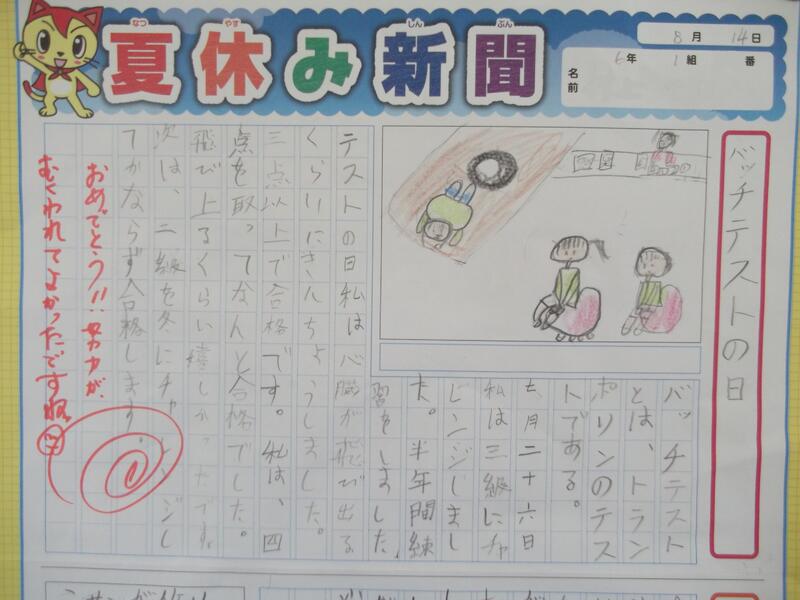 夏休み新聞
なつ
やす
しん
ぶん
8月14日
6年1組 番
名前
バッチテストの日
バッチテスト
とは、トラン
ポリンのテス
トである。
七月二十六日
私は三級にチャ
レンジしまし
た。半年間練
習をしました。
テストの日私は心臓が飛び出る
くらいにきんちょうしました。
三点以上で合格です。私は、四
点を取ってなんと合格でした。
飛び上るくらい嬉しかったです。
次は、二級を冬にチャレンジし
てかならず合格します。
おめでとう!!努力が、
むくわれてよかったですね。